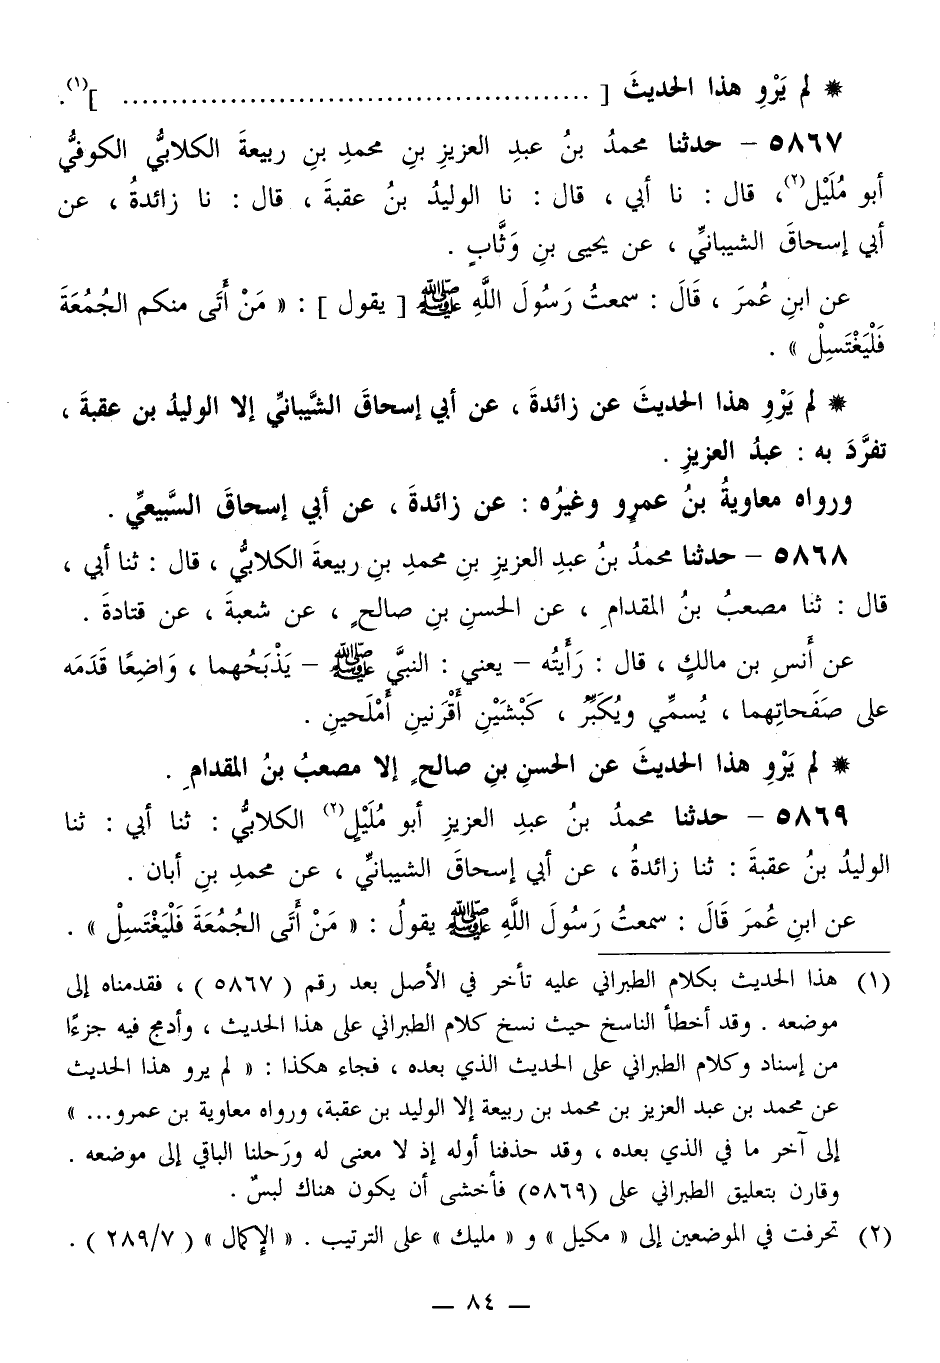 * لم يَرْوِ هذا الحديثَ [ ............................................... ](١).
٥٨٦٧ – حدثنا محمدُ بنُ عبدِ العزيزِ بنِ محمدِ بنِ ربيعةَ الكلابيُّ الكوفيُّ
أبو مُلَيْل(٢)، قال : نا أبي ، قال : نا الوليدُ بنُ عقبةَ ، قال : نا زائدةُ ، عن
أبي إسحاقَ الشيبانيِّ ، عن يحيى بنِ وَثَّابٍ .
عن ابنِ عُمرَ ، قَالَ : سمعتُ رَسُولَ اللَّهِ ﷺ [ يقول ] : « مَنْ أَتَى منكم الجُمُعَةَ
فَلْيَغْتَسِلْ » .
* لم يَرْوِ هذا الحديثَ عن زائدةَ ، عن أبي إسحاقَ الشَّيبانيِّ إلا الوليدُ بن عقبةَ ،
تفرَّدَ به : عبدُ العزيزِ .
ورواه معاويةُ بنُ عمرٍو وغيرُه : عن زائدةَ ، عن أبي إسحاقَ السَّبيعيِّ .
٥٨٦٨ – حدثنا محمدُ بنُ عبدِ العزيزِ بنِ محمدِ بنِ ربيعةَ الكلابيُّ ، قال : ثنا أبي ،
قال : ثنا مصعبُ بنُ المقدامِ ، عن الحسنِ بنِ صالحٍ ، عن شعبةَ ، عن قتادةَ .
عن أَنسِ بن مالكٍ ، قال : رَأَيتُه – يعني : النبيَّ ﷺ – يَذْبَحُهما ، وَاضِعًا قَدَمَه
على صَفَحاتِهما ، يُسمِّي ويُكَبِّرُ ، كَبْشَيْنِ أَقْرَنينِ أَمْلَحينِ .
* لم يَرْوِ هذا الحديثَ عن الحسنِ بنِ صالحٍ إلا مصعبُ بنُ المقدامِ .
٥٨٦٩ – حدثنا محمدُ بنُ عبدِ العزيزِ أبو مُلَيْلٍ(٢) الكلابيُّ : ثنا أبي : ثنا
الوليدُ بنُ عقبةَ : ثنا زائدةُ ، عن أبي إسحاقَ الشيبانيِّ ، عن محمدِ بنِ أبان .
عن ابنِ عمرَ قَالَ : سمعتُ رَسُولَ اللَّهِ ﷺ يقولُ : « مَنْ أَتَى الجُمُعَةَ فَلْيَغْتَسِلْ » .
(١) هذا الحديث بكلام الطبراني عليه تأخر في الأصل بعد رقم ( ٥٨٦٧ ) ، فقدمناه إلى
موضعه . وقد أخطأ الناسخ حيث نسخ كلام الطبراني على هذا الحديث ، وأدمج فيه جزءًا
من إسناد وكلام الطبراني على الحديث الذي بعده ، فجاء هكذا : « لم يرو هذا الحديث
عن محمد بن عبد العزيز بن محمد بن ربيعة إلا الوليد بن عقبة، ورواه معاوية بن عمرو... »
إلى آخر ما في الذي بعده ، وقد حذفنا أوله إذ لا معنى له ورَحلنا الباقي إلى موضعه .
وقارن بتعليق الطبراني على (٥٨٦٩) فأخشى أن يكون هناك لبسٌ .
(٢) تحرفت في الموضعين إلى « مكيل » و « مليك » على الترتيب . « الإكمال » ( ٢٨٩/٧ ) .
— ٨٤ —